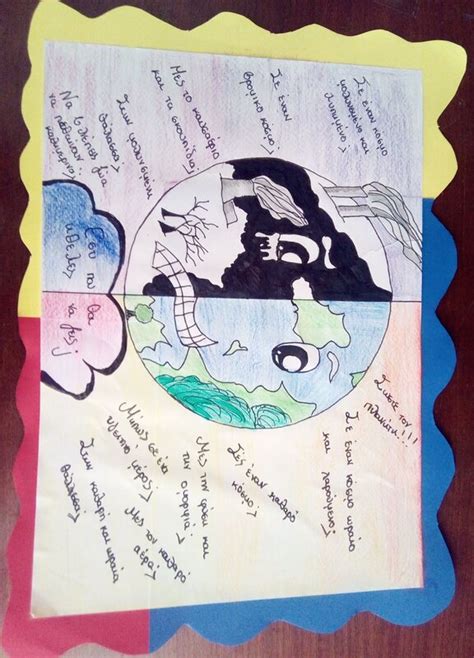 Εσύ που θα
ήθελες
να ζεις;
Σε έναν κόσμο
μολυσμένο και
λυπημένο;
Σε έναν
βρώμικο κόσμο;
Μες το καυσαέριο
και τα σκουπίδια;
Στην μολυσμένη
θάλασσα;
Να βλέπεις ζώα
να πεθαίνουν
καθημερινά;
Σώστε τον
πλανήτη!!!
Σε έναν κόσμο ωραίο
και χαρούμενο;
έναν καθαρό
κόσμο;
Μες την φύση και
την ομορφιά;
Μήπως σε ένα
μέρος;
Μες τον καθαρό
αέρα;
Στην καθαρή και ωραία
θάλασσα;